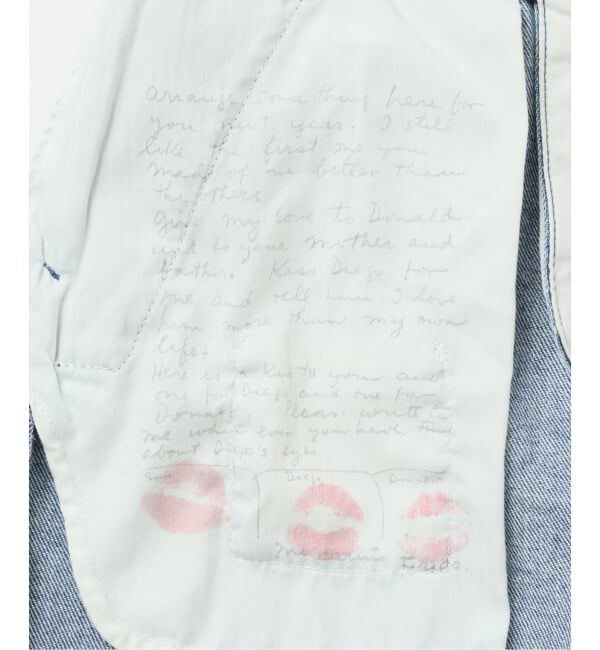 arrange some thing here for
you next year. I still
like the first one you
made of me better than
the others
Give my love to Donald
and to your mother and
father. Kiss Diego for
me and tell him I love
him more than my own
life.
Here is a kiss to you and
one for Diego and one for
Donald. Please write to
me when ever you have time
about Diego's eyes
Diego Donald
Mi cariño Frida.